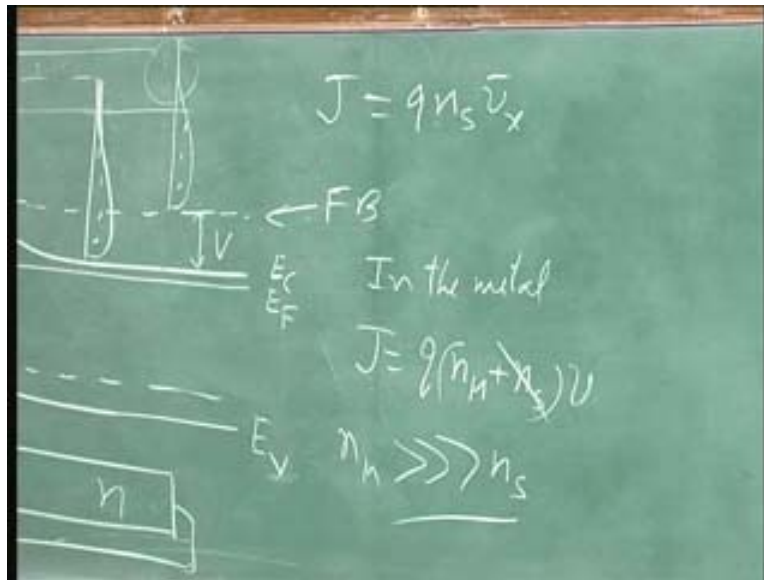 J = q n_s v̄_x
← FB
V
E_C
E_F
In the metal
J = q(n_M + n_s) v
E_V
n_M >>> n_s
n